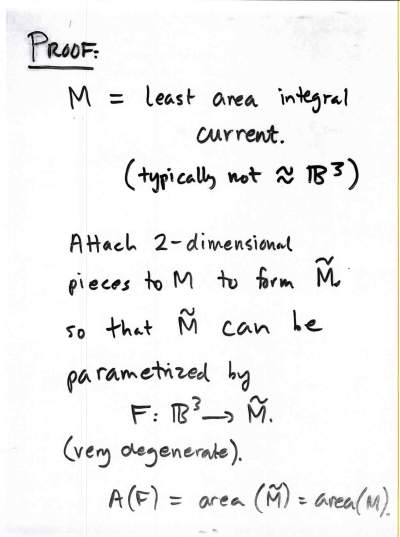 PROOF:
M = least area integral
current.
(typically not ≈ 𝔹³)
Attach 2-dimensional
pieces to M to form M̃
so that M̃ can be
parametrized by
F: 𝔹³ → M̃.
(very degenerate).
A(F) = area (M̃) = area(M).